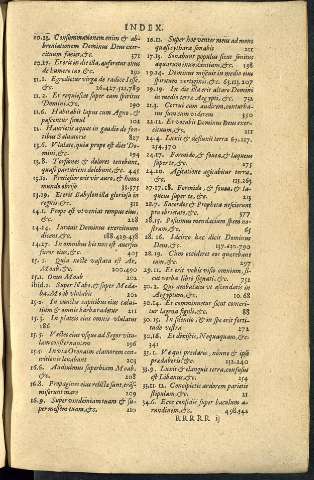 INDEX.
10.23. Consummationem enim & ab-
breuiationem Dominus Deus exer-
cituum faciet, &c. 371
10.27. Erit in die illa, auferetur onus
de humero tuo &c. 190
11.1. Egredietur virga de radice Iesse,
&c. 26.427.512.789
11.2. Et requiescet super eum spiritus
Domini, &c. 190
11.6. Habitabit lupus cum Agno, &
pascentur simul 202
12. Haurietis aquas in gaudio de fon-
tibus Saluatoris 827
13.6. Vlulate, quia prope est dies Do-
mini, &c. 194
13.8. Torsiones & dolores tenebunt,
quasi parturient dolebunt, &c. 445
13.12. Pretiosior erit vir auro, & homo
mundo obrizo 33.575
13.19. Erit Babylon illa gloriosa in
regnis &c. 311
14.1. Prope est vt veniat tempus eius,
&c. 218
14.24. Iurauit Dominus exercituum
dicens, &c. 188.419.478
14.27. In omnibus his non est auersus
furor eius, &c. 203
15.1. Quia nocte vastata est Ar,
Moab, &c. 200.490
15.2. Onus Moab 202
ibid.2. Super Nabo, & super Meda-
ba, Moab vlulabit 202
15.2. In cunctis capitibus eius calui-
tium & omnis barba radetur 211
15.3. In plateis eius omnis vlulatus
186
15.5. Vectes eius vsque ad Segor vitu-
lam conternantem 196
15.5. In via Oronaim clamorem con-
tritionis leuabunt 205
16.6. Audiuimus superbiam Moab,
&c. 208
16.8. Propagines eius relictæ sunt, trás-
mierunt mare 209
16.9. Super vindemiam tuam & su-
per messem tuam, &c. 210
16.11. Super hoc venter meus ad moab
quasi cythara sonabit 211
17.13. Sonabunt populi sicut sonitus
aquarum inundantium, &c. 198
19.14. Dominus miscuit in medio eius
spiritum vertiginis, &c. 65.115.207
19.19. In die illa erit altare Domini
in medio terræ Aegypti, &c. 752
21.3. Corrui cum audirem, conturba-
tus sum cum viderem 350
22.12. Et vocabit Dominus Deus exer-
cituum, &c. 211
24.4. Luxit & defluxit terra 69.127.
254.370
24.17. Formido, & fouea, & laqueus
super te, &c. 275
24.20. Agitatione agitabitur terra,
&c. 121.265
27.17.18. Formido, & fouea, & la-
queus super te, &c. 213
28.7. Sacerdos & Propheta nescierunt
præ ebrietate, &c. 577
28.15. Posuimus mendacium spem no-
stram, &c. 65
28.16. Idcirco hæc dicit Dominus
Deus, &c. 137.420.790
28.19. Cum occideret eos quærebant
eum, &c. 297
29.11. Et erit vobis visio omnium, si-
cut verba libri signati, &c. 751
30.2. Qui ambulatis vt ascendatis in
Aegyptum, &c. 10.68
30.14. Et comminuetur sicut conteri-
tur lagena figuli, &c. 88
30.15. In silentio, & in spe erit forti-
tudo vestra 272
30.16. Et dixistis, Nequaquam, &c.
341
33.1. Væ qui prædaris, nonne & ipse
prædaberis? &c. 231.240
33.9. Luxit & elanguit terra, confusus
est Libanus, &c. 254
33.11.12. Concipietis ardorem parietis
stipulam, &c. 21
34.6. Ecce confisus super baculum a-
rundineum, &c. 456.542
RRRRR ij